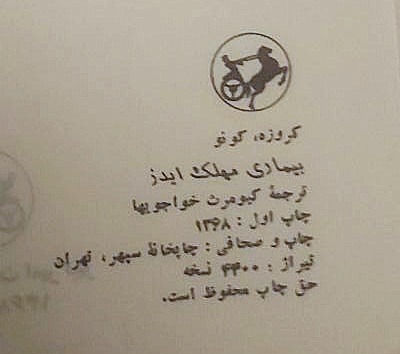 کروزه، کونو
بیماری مهلک ایدز
ترجمهٔ کیومرث خواجویها
چاپ اول : ۱۳۶۸
چاپ و صحافی : چاپخانهٔ سپهر، تهران
تیراژ : ۴۴۰۰ نسخه
حق چاپ محفوظ است.